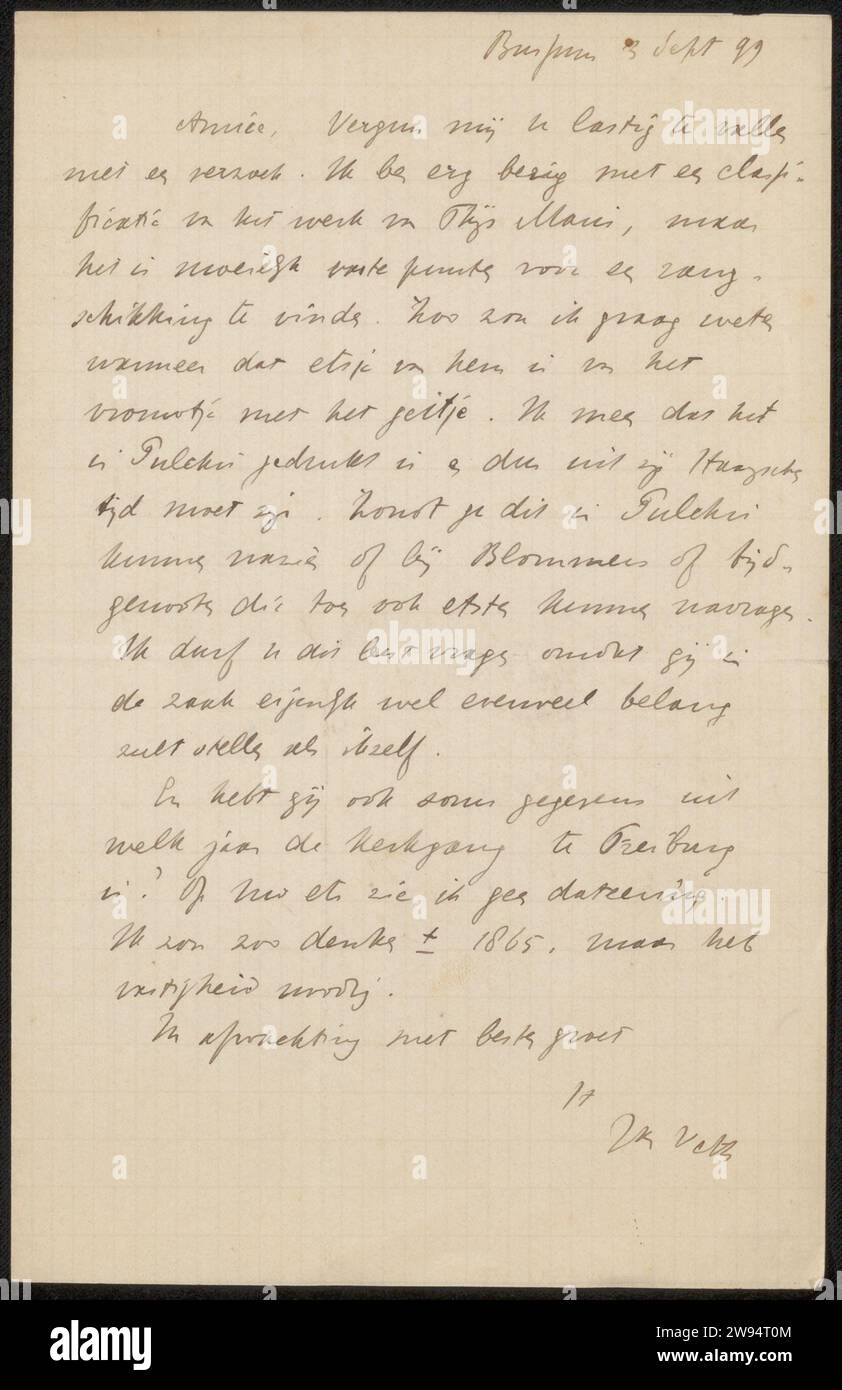 Bussum 3 Sept 99
Amice, Vergun mij u lastig te vallen
met een verzoek. Ik ben erg bezig met een classi-
ficatie van het werk van Thijs Maris, maar
het is moeielijk vaste punten voor een rang-
schikking te vinden. Zoo zou ik graag weten
wanneer dat etsje van hem is van het
vrouwtje met het geitje. Ik meen dat het
in Pulchri gedrukt is en dus uit zijn Haagschen
tijd moet zijn. Zoudt je dit in Pulchri
kunnen nazien of bij Blommers of tijd-
genooten die toen ook etsten kunnen navragen.
Ik durf u dit best vragen omdat gij in
de zaak eigenlijk wel evenveel belang
zult stellen als ikzelf.
En hebt gij ook soms gegevens uit
welk jaar de Kerkgang te Freiburg
is? Op uw ets zie ik geen dateering.
Ik zou zoo denken ± 1865, maar heb
vastigheid noodig.
In afwachting met besten groet
tt
Jan Veth
alamy
alamy
Image ID: 2W94T0M
www.alamy.com